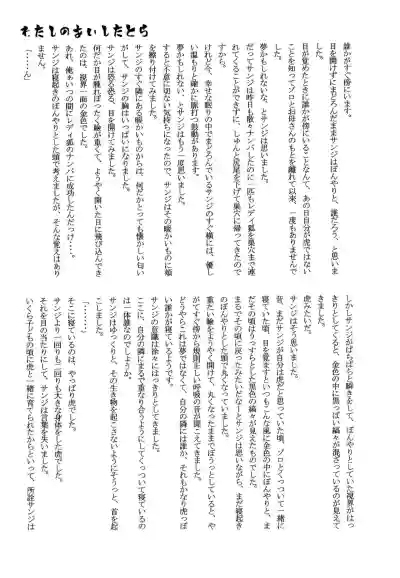 わたしのあいしたとら
誰かがすぐ傍にいます。
目を開けずにまどろんだままサンジはぼんやりと、誰だろう、と思いま
した。
目が覚めたときに誰かが傍にいることなんて、あの日自分が虎ではない
ことを知ってゾロとお母さんのもとを離れて以来、一度もありません
夢かもしれないな、とサンジは思いました。
だってサンジは昨日も散々ナンパしたのに一匹もレディ狐を巣穴まで連
れてくることができずに、しゅんと尻尾を下げて巣穴に帰ってきたので
すから。
けれど今、幸せな眠りの中でまどろんでいるサンジのすぐ横には、優し
い温もりと確かに脈打つ鼓動があります。
夢かもしれない、とサンジはもう一度思いました。
すると不意に切ない気持ちになったので、サンジはその暖かいものに頬
を擦り付けてみました。
サンジのすぐ隣にある暖かいものからは、何だかとっても懐かしい匂い
がして、サンジの胸はいっぱいになりました。
サンジは恐る恐る、目を開けてみました。
何だか目が腫れぼったく瞼が重くて、ようやく開いた目に飛び込んでき
たのは、視界一面の金色でした。
あれ、俺いつの間にレディ狐のナンパに成功したんだっけ・・・。
サンジは寝起きのぼんやりとした頭で考えましたが、そんな覚えはあり
ません。
「・・・・ん」
しかしサンジがぱちぱちと瞬きをして、ぼんやりとしていた視界がはっ
きりとしてくると、金色の中に黒っぽい縞々が混ざっているのが見えて
きました。
虎みたいだ。
サンジはそう思いました。
昔、まだサンジが自分は虎だと思っていた頃、ゾロとくっついて一緒に
寝ていた頃、目を覚ますといつもこんな風に金色の中にぼんやりと、ま
だその頃はうっすらとした黒色の縞々が見えたものでした。
まるでその頃に戻ったみたいだなーとサンジは思いながら、まだ寝起き
のぼんやりとした頭で丸くなっていました。
重たい瞼をようやく開けて、丸くなったままでぼうっとしていると、や
がてすぐ傍から規則正しい呼吸の音が聞こえてきました。
どうやらこれは夢ではなくて、自分の隣には誰か、それもかなり虎っぽ
い誰かが寝ているようです。
サンジの意識は徐々にはっきりとしてきました。
ここに、自分の隣にまるで重なり合うようにしてくっついて寝ているの
は一体誰なのでしょうか。
サンジはゆっくりと、その生き物を起こさないようにそうっと、首を起
こしてみました。
「・・・・・・」
そこに寝ているのは、やっぱり虎でした。
サンジより一回りも二回りも大きな身体をした虎でした。
それを目の当たりにして、サンジは言葉を失いました。
いくら子どもの頃に虎と一緒に育てられたからといって、所詮サンジは